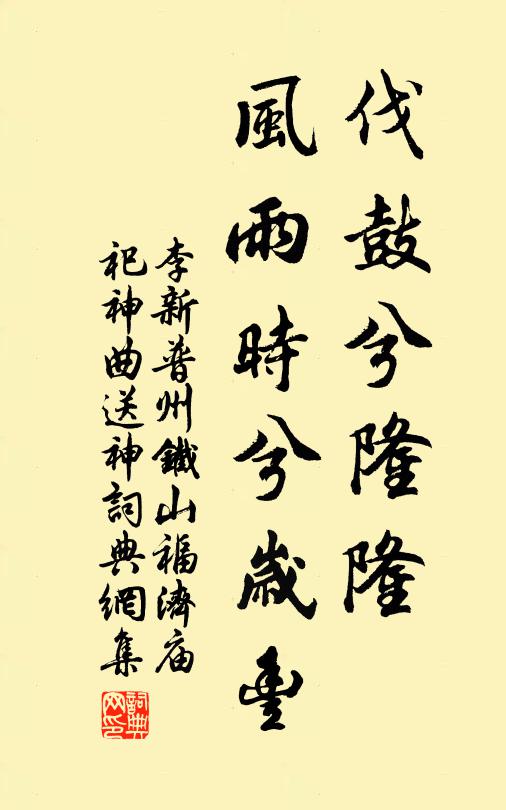 伐鼓兮隆隆
風雨時兮歲豊
李新普州鐵山福濟庙
祀神曲送神詞典網集
詞典网印